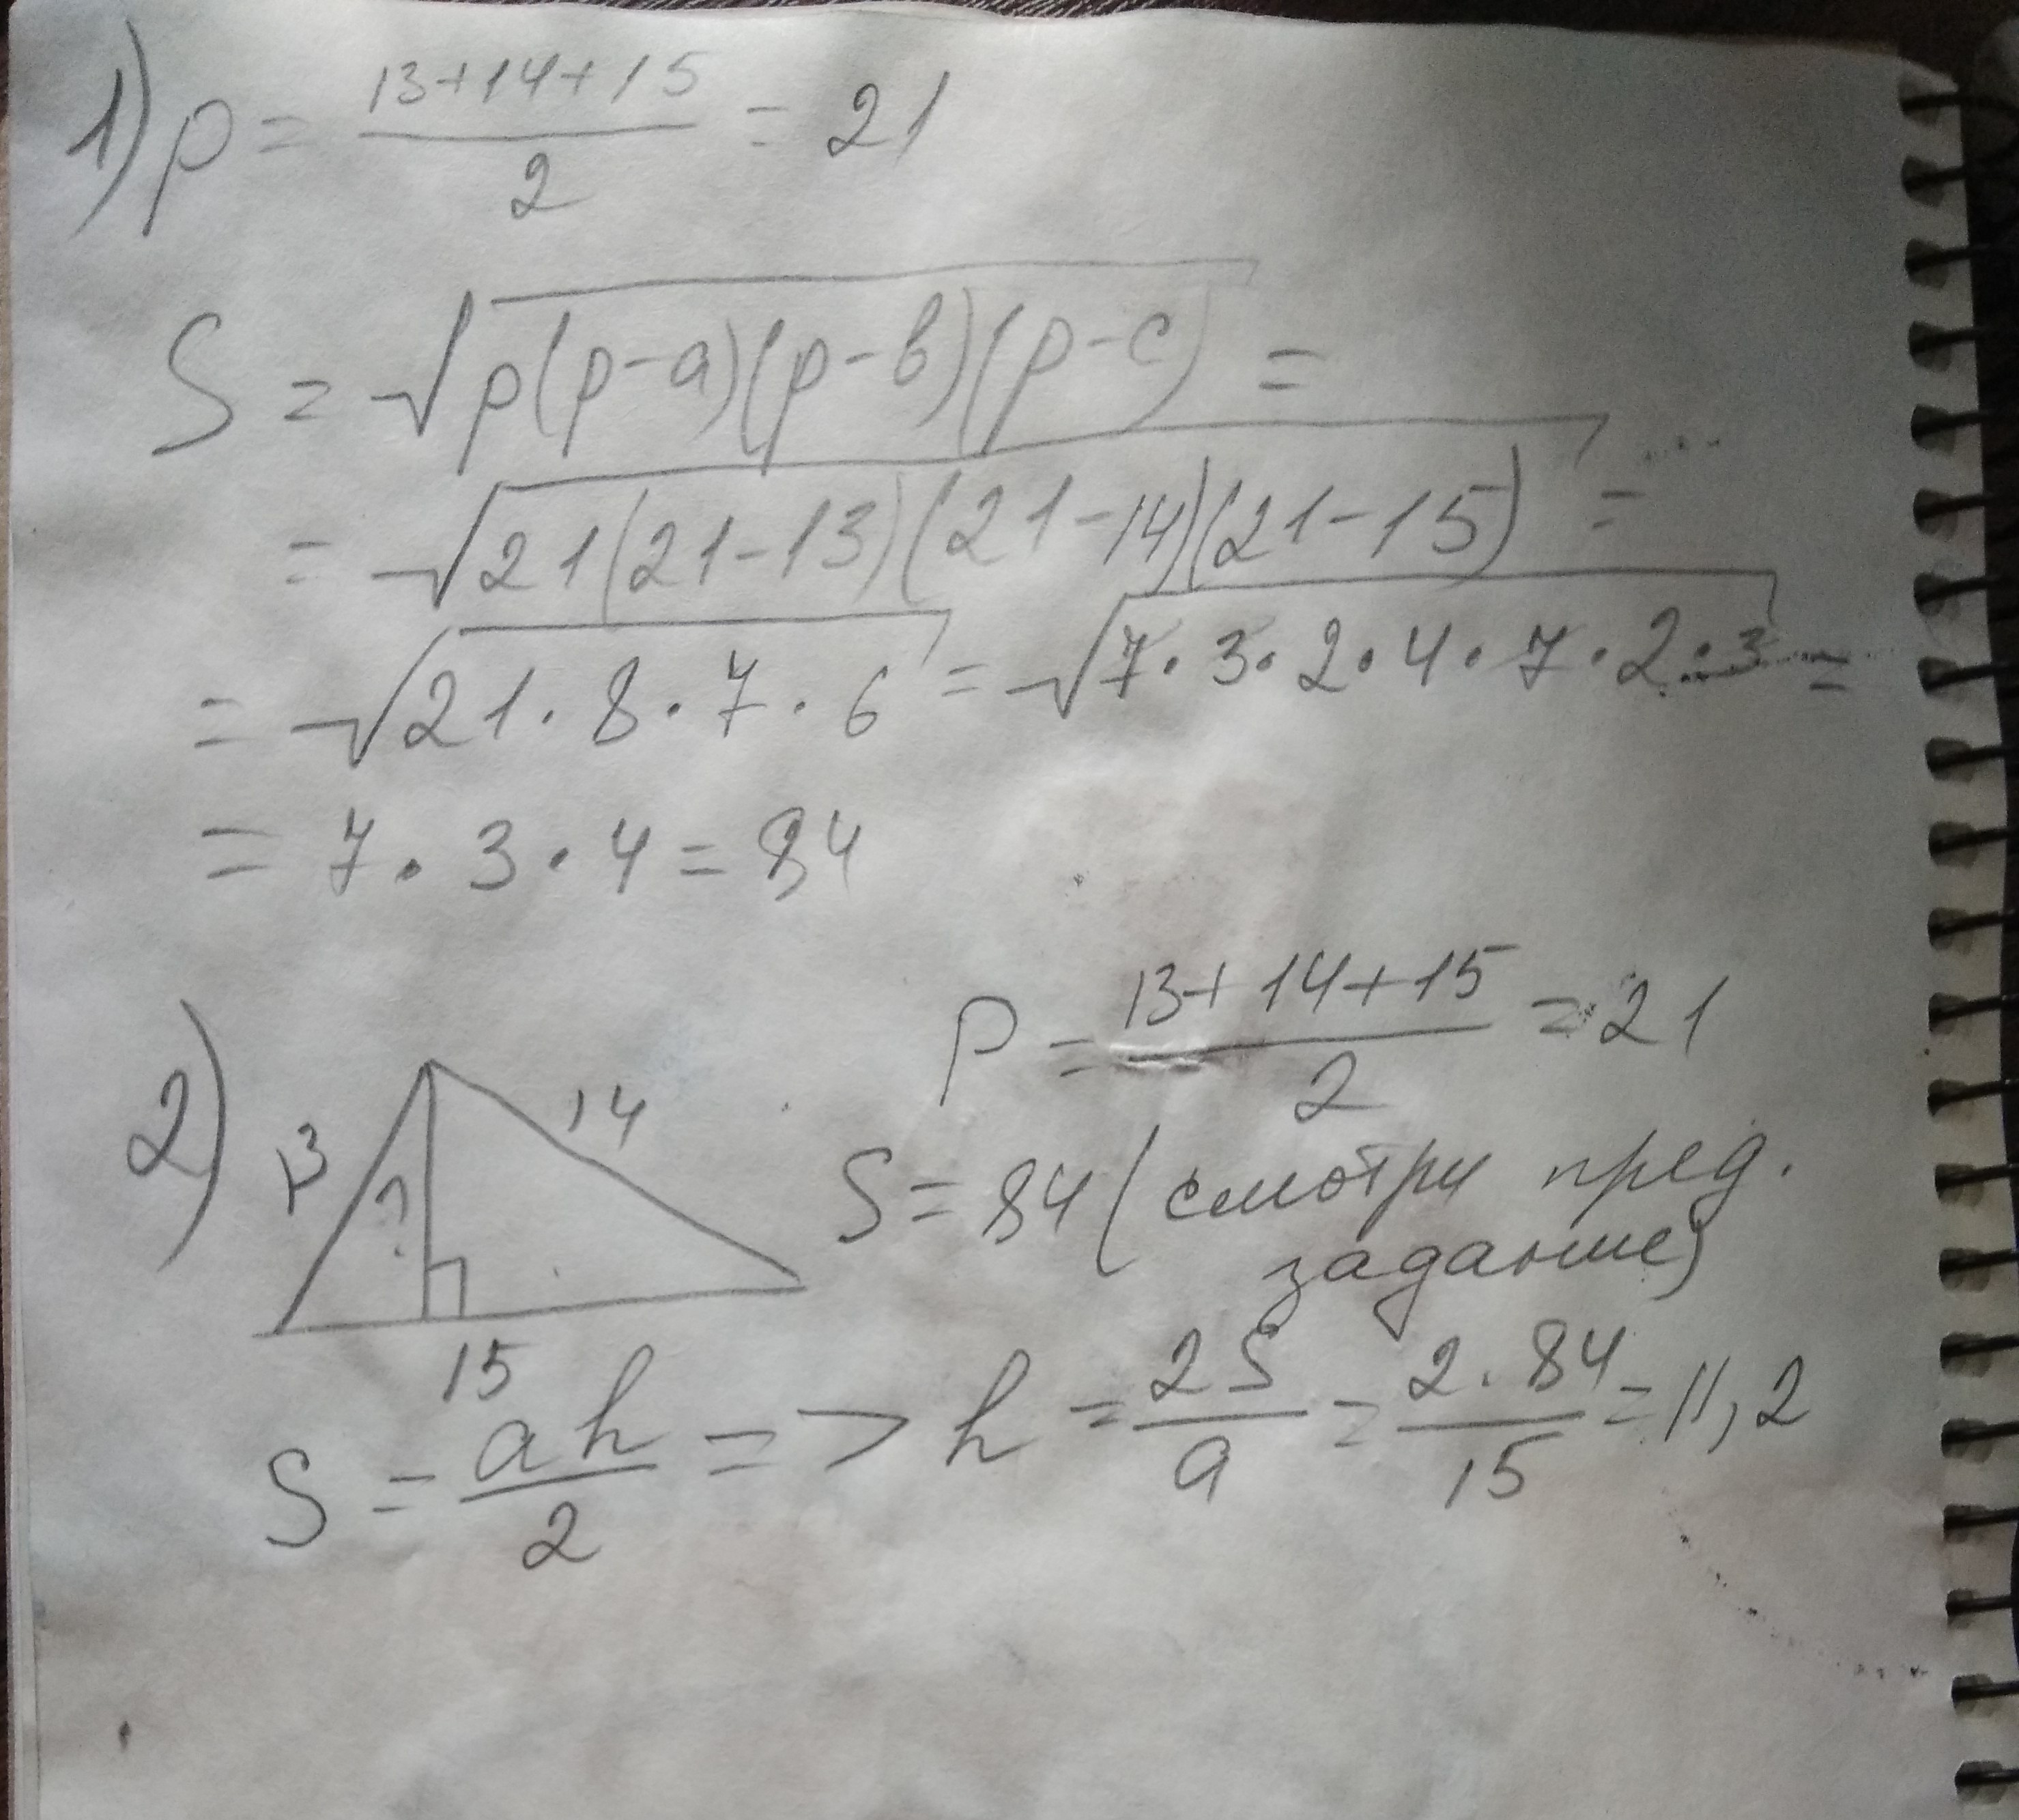 1) p = (13+14+15)/2 = 21
S = √(p(p-a)(p-в)(p-c)) =
= √(21(21-13)(21-14)(21-15)) =
= √(21·8·7·6) = √(7·3·2·4·7·2·3) =
= 7·3·4 = 84
2) 13 ? 14 15
P = (13+14+15)/2 = 21
S = 84 (смотри пред.
задание)
S = ah/2 => h = 2S/a = 2·84/15 = 11,2